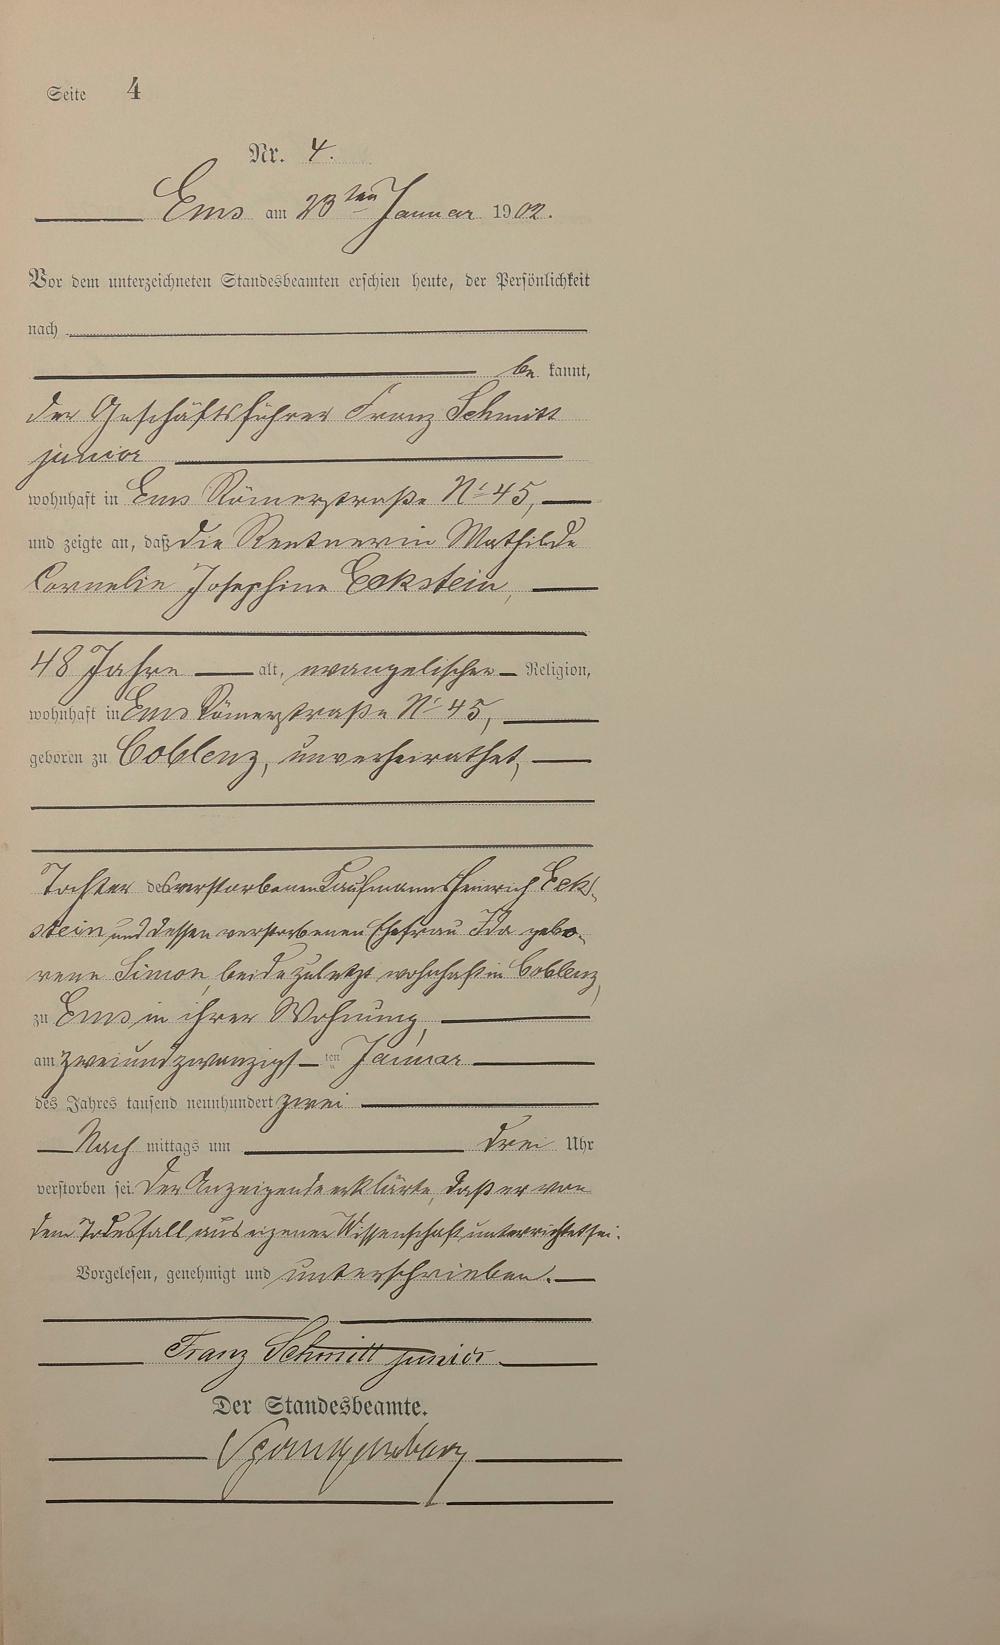 Seite 4
Nr. 4.
Ems am 23ten Januar 1902.
Vor dem unterzeichneten Standesbeamten erschien heute, der Persönlichkeit
nach
be kannt,
der Geschäftsführer Franz Schmitt
junior
wohnhaft in Ems Römerstraße No 45,
und zeigte an, daß die Rentnerin Mathilde
Cornelie Josephine Eckstein,
48 Jahre alt, evangelischer Religion,
wohnhaft in Ems Römerstraße No 45,
geboren zu Coblenz, unverheirathet,
Tochter des verstorbenen Kaufmanns Heinrich Eck-
stein und dessen verstorbenen Ehefrau Ida gebo-
rene Simon, beide zuletzt wohnhaft in Coblenz,
zu Ems in ihrer Wohnung,
am zweiundzwanzigsten Januar
des Jahres tausend neunhundert zwei
Nach mittags um drei Uhr
verstorben sei. Der Anzeigende erklärte, daß er von
dem Todesfall aus eigener Wissenschaft unterrichtet sei.
Vorgelesen, genehmigt und unterschrieben.
Franz Schmitt junior
Der Standesbeamte.